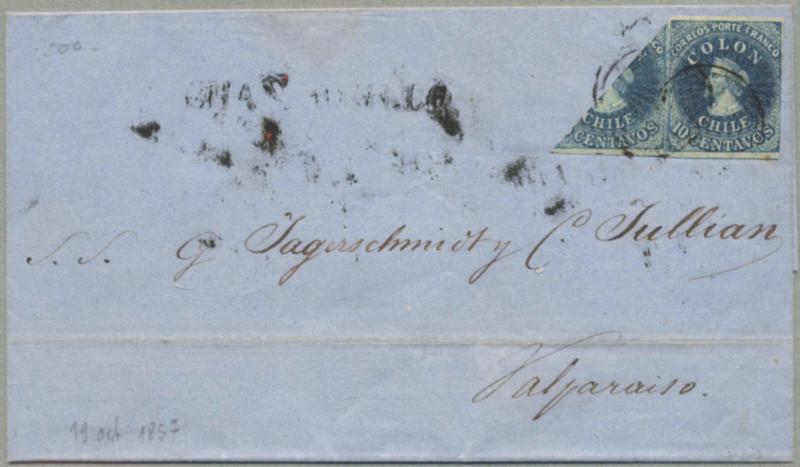 500-
CORREOS PORTE FRANCO
COLON
CHILE
10 CENTAVOS
CHILE
CENTAVOS
S. S. G Jagerschmidt y C Jullian
Valparaiso.
19 oct 1857